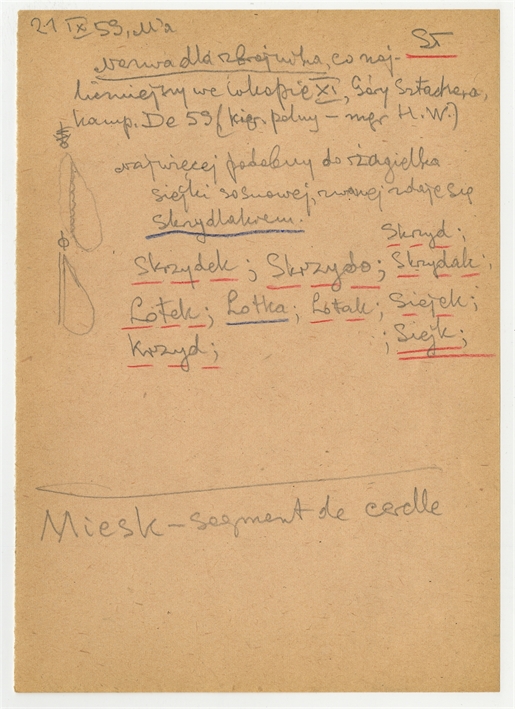 21 IX 59, M'a
St
nazwa dla zbrojnika, co naj-
liczniejszy we wkopie XI, Góry
kamp. De 59 (kier. polny – mgr H.W.)
najwięcej podobny do żagielka
siejki sosnowej, zwanej zdaje się
Skrzydlakiem.
Skrzyd;
Skrzydek; Skrzydo; Skrzydak;
Lotek; Lotka; Lotak; Siejek;
Krzyd; ; Siejk;
Miesk – segment de cercle